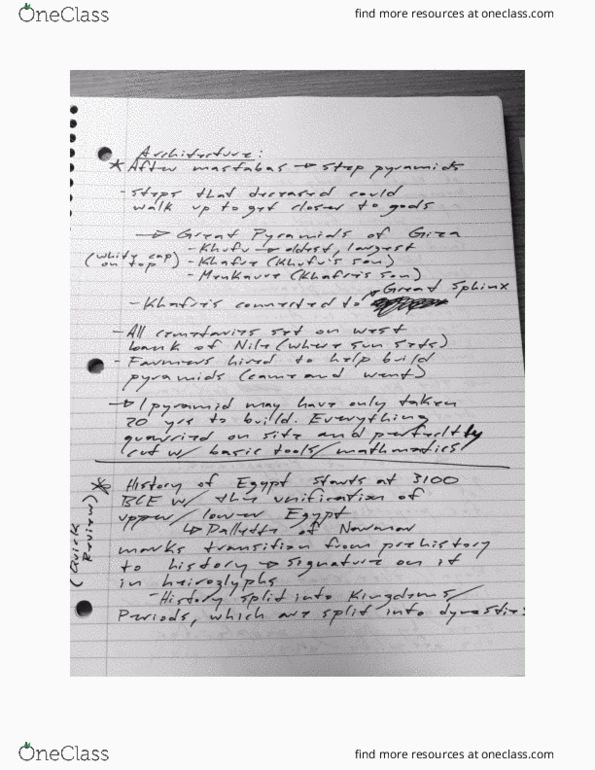 OneClass
find more resources at oneclass.com
Architecture:
* After mastabas → step pyramids
- steps that deceased could
walk up to get closer to gods
→ Great Pyramids of Giza
- Khufu → oldest, largest
(white cap on top) - Khafre (Khufu's son)
- Menkaure (Khafre's son)
- Khafre's connected to Great Sphinx
- All cemetaries set on west
bank of Nile (where sun sets)
- Farmers hired to help build
pyramids (came and went)
→ 1 pyramid may have only taken
20 yrs to build. Everything
quarried on site and perfectly
cut w/ basic tools/mathematics
(Quick Review)
* History of Egypt starts at 3100
BCE w/ the unification of
upper/lower Egypt
↳ Pallette of Narmar
marks transition from prehistory
to history → signature on it
in heiroglyphs
- History split into Kingdoms/
Periods, which are split into dynasties
OneClass
find more resources at oneclass.com